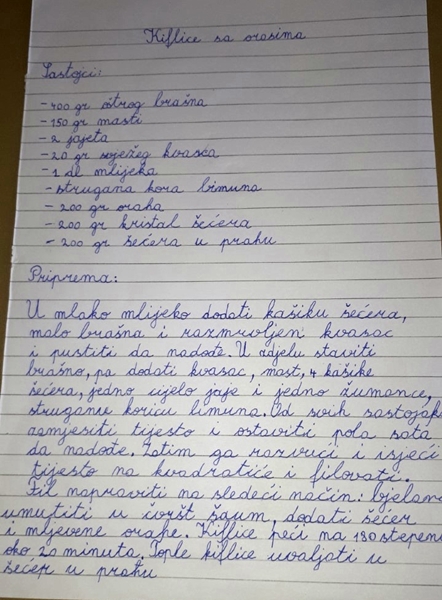 Kiflice sa orasima
Sastojci:
- 400 gr oštrog brašna
- 150 gr masti
- 2 jajeta
- 20 gr svježeg kvasca
- 1 dl mlijeka
- strugana kora limuna
- 200 gr oraha
- 200 gr kristal šećera
- 200 gr šećera u prahu
Priprema:
U mlako mlijeko dodati kašiku šećera,
malo brašna i razmrvljen kvasac
i pustiti da nadođe. U zdjelu staviti
brašno, pa dodati kvasac, mast, 4 kašike
šećera, jedno cijelo jaje i jedno žumance,
struganu koricu limuna. Od svih sastojaka
zamjesiti tijesto i ostaviti pola sata
da nadođe. Zatim ga razvući i isjeći
tijesto na kvadratiće i filovati.
Fil napraviti na sledeći način: bjelance
umutiti u čvršt šaum, dodati šećer
i mljevene orahe. Kiflice peći na 180 stepeni
oko 20 minuta. Tople kiflice uvaljati u
šećer u prahu